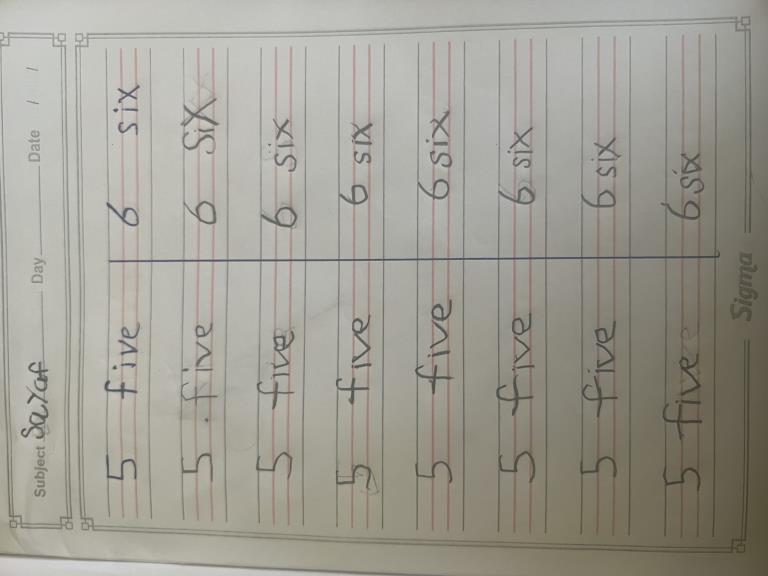 Subject Saraf Day Date / /
5 five 6 six
5 . five 6 six
5 five 6 six
5 five 6 six
5 five 6 six
5 five 6 six
5 five 6 six
5 five 6 six
Sigma